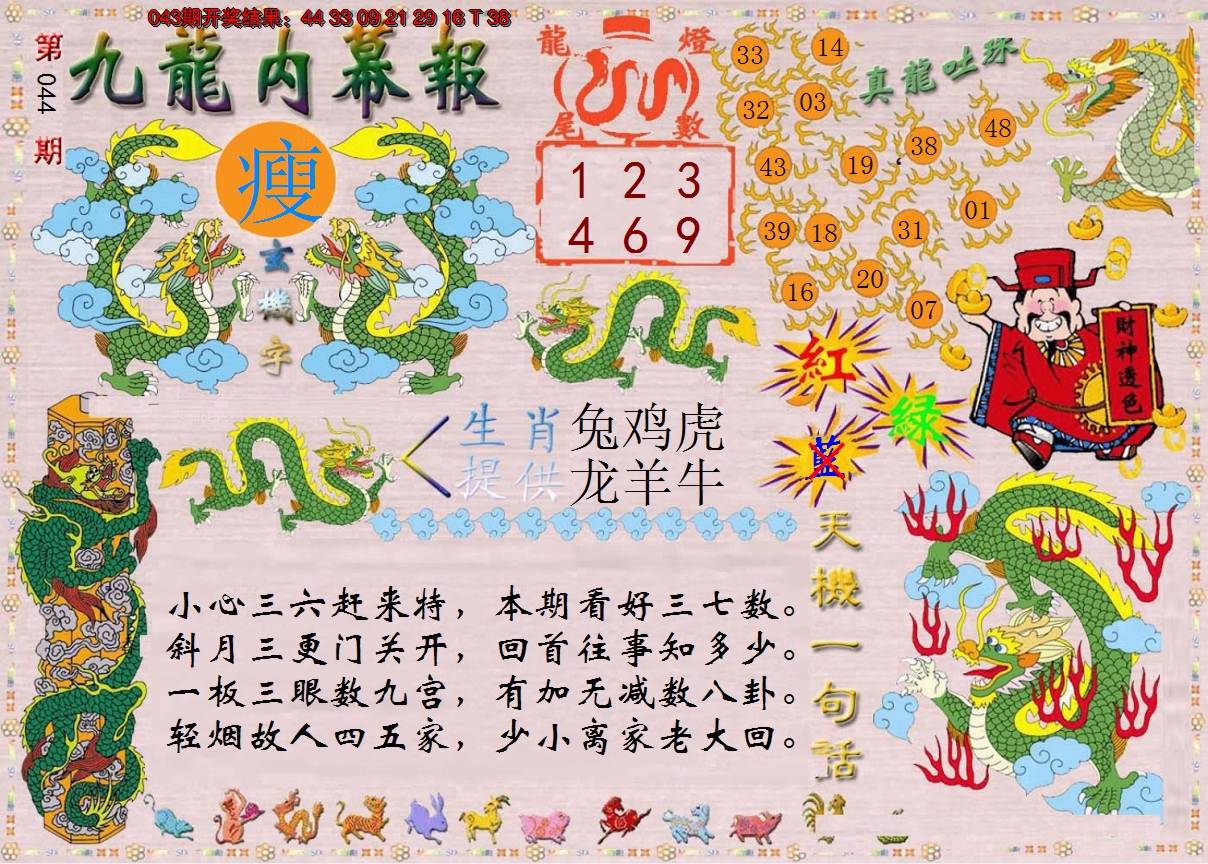 043期开奖结果：44 33 09 21 29 16 T 38
第 044 期
九龍内幕報
瘦
玄機字
龍燈尾數
1 2 3
4 6 9
真龍吐珠
33 14
32 03
43 19 38 48
39 18 31 01
16 20 07
財神透色
紅
綠
藍
生肖 兔鸡虎
提供 龙羊牛
小心三六赶来特，本期看好三七数。
斜月三更门关开，回首往事知多少。
一板三眼数九宫，有加无减数八卦。
轻烟故人四五家，少小离家老大回。
天機一句話